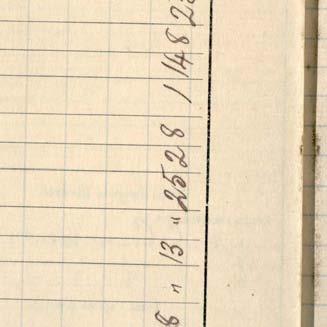 8 " 13 " 2528 1 148 2